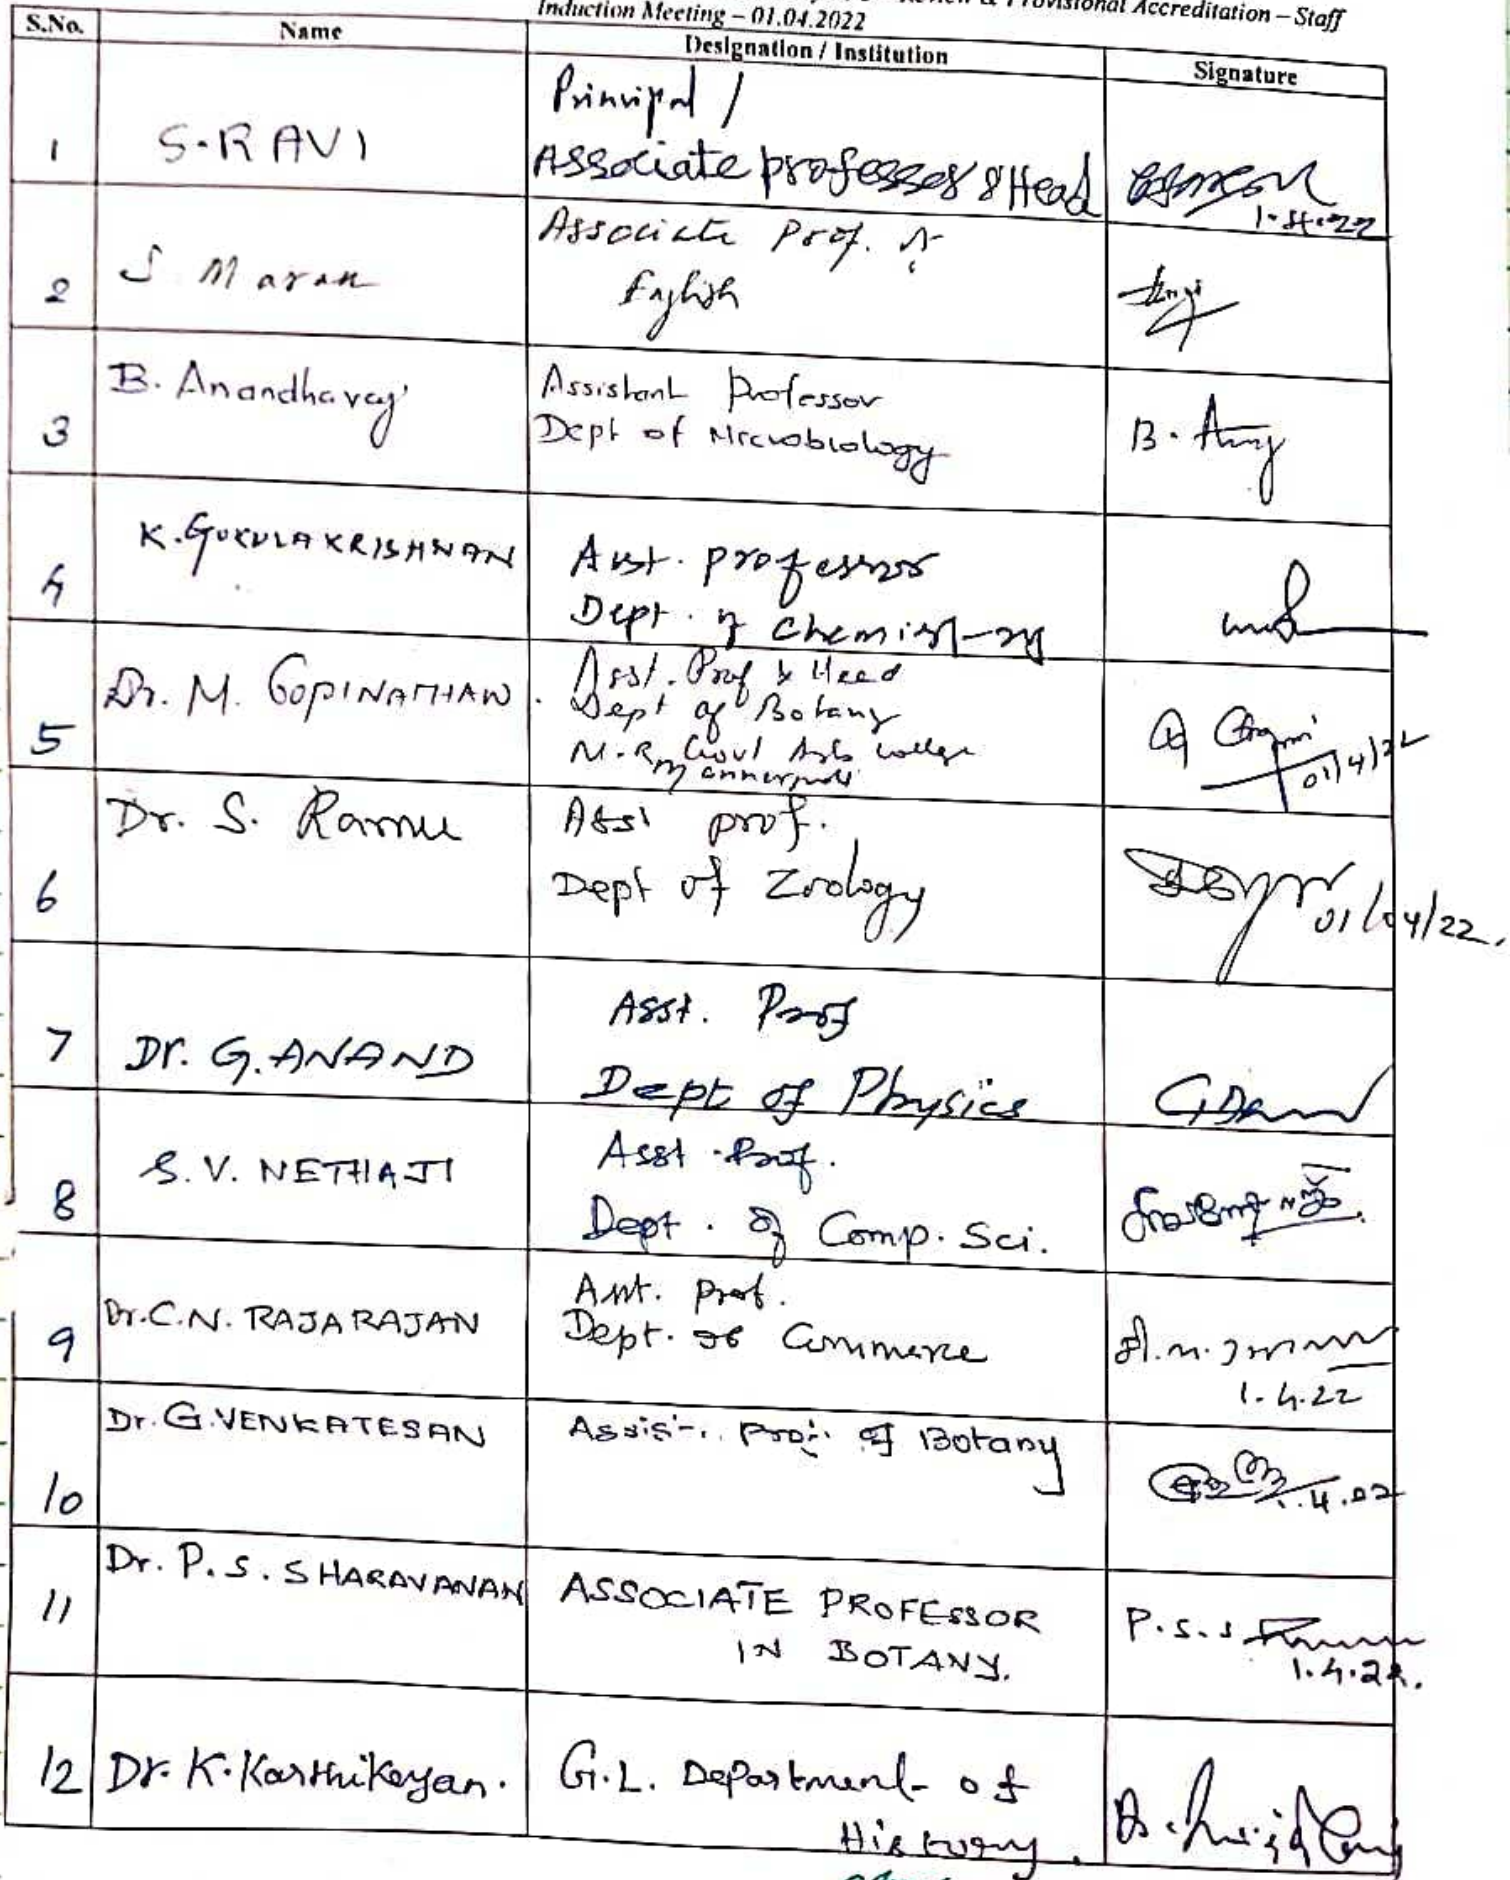 & Provisional Accreditation – Staff
Induction Meeting – 01.04.2022
S.No. Name Designation / Institution Signature
1 S. RAVI Principal /
Associate professor & Head
1.4.22
2 J Maran Associate Prof. of
English
3 B. Anandharaj Assistant Professor
Dept of Microbiology B.
4 K. GOKULAKRISHNAN Asst. professor
Dept. of chemistry
5 Dr. M. GOPINATHAN. Asst. Prof & Head
Dept of Botany
M.R. Govt Arts College
Mannargudi 01/4/22
6 Dr. S. Ramu Asst prof.
Dept of Zoology
01/04/22.
7 Dr. G. ANAND Asst. Prof
Dept of Physics
8 S. V. NETHAJI Asst. Prof.
Dept. of Comp. Sci.
9 Dr. C.N. RAJARAJAN Asst. Prof.
Dept. of Commerce
1.4.22
10 Dr. G. VENKATESAN Assist. prof. of Botany
11 Dr. P. S. SHARAVANAN ASSOCIATE PROFESSOR
IN BOTANY. P. S. S
1.4.22.
12 Dr. K. Karthikeyan. G.L. Department of
History.